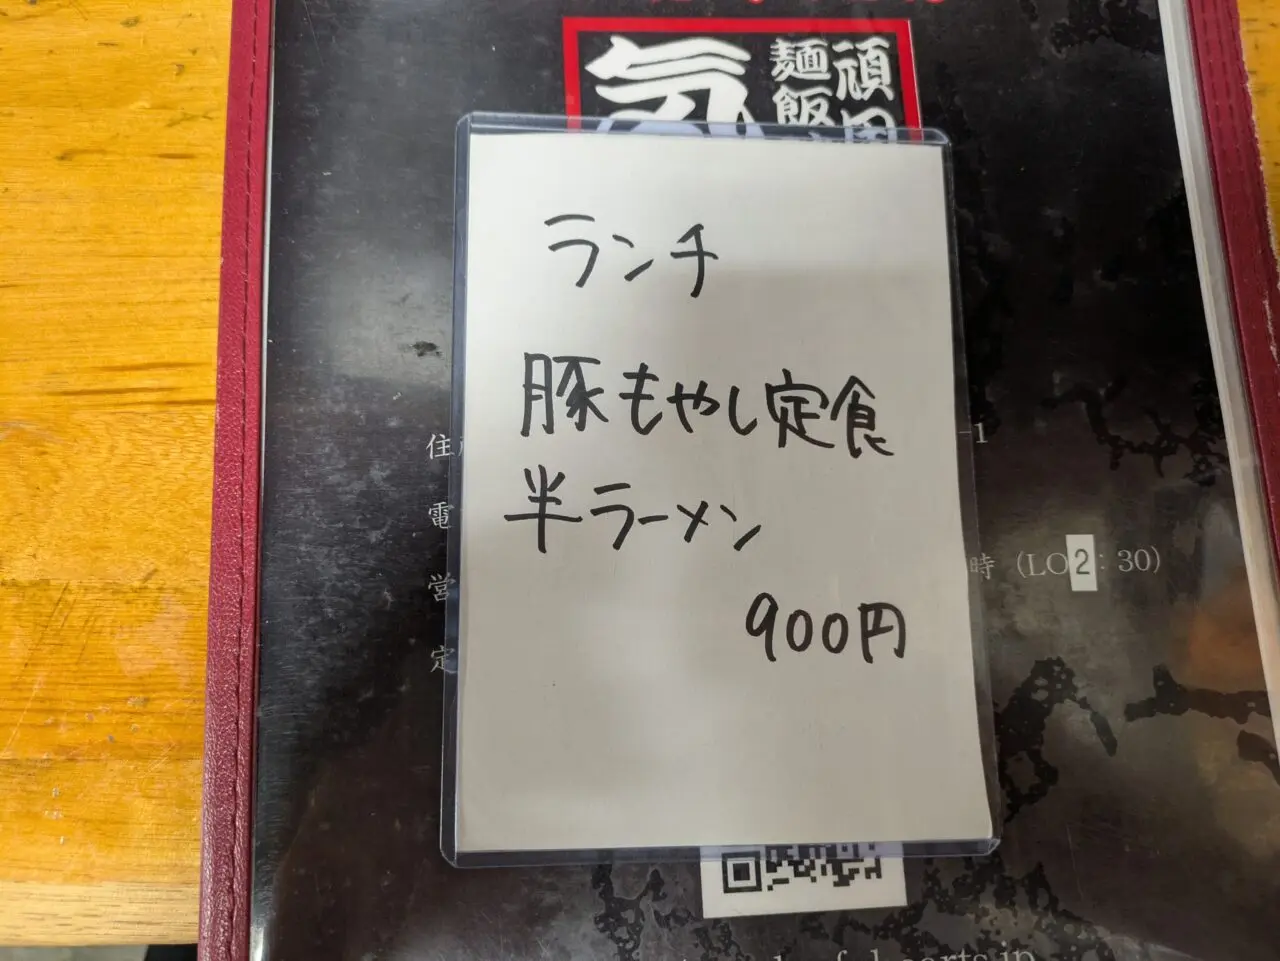 気
頑
麺飯
ランチ
豚もやし定食
半ラーメン
900円
住
-1
電
営
時（LO2：30）
定